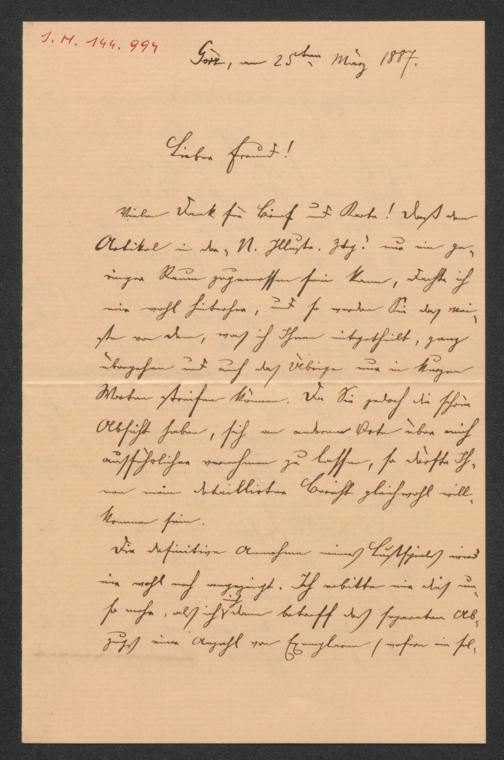 J. N. 144.994
Görz, am 25ten März 1887.
Lieber Freund!
Vielen Dank für Brief und Karte! Daß dem
Artikel in der „N. Illustr. Ztg." nur ein ge-
ringer Raum zugemessen sein kann, dachte ich
mir wohl hinterher, und so werden Sie das mei-
ste von dem, was ich Ihnen mitgetheilt, ganz
übergehen und auch das Übrige nur in kurzen
Worten streifen können. Da Sie jedoch die schöne
Absicht haben, sich an anderem Orte über mich
ausführlicher vernehmen zu lassen, so dürfte Ih-
nen mein detaillirter Bericht gleichwohl will-
kommen sein.
Die definitive Annahme eines Lustspiels wird
mir wohl noch angezeigt. Ich erbitte mir dies um-
so mehr, als ich dann betreff des separaten Ab-
zugs eine Anzahl von Exemplaren (wofern ein sol-